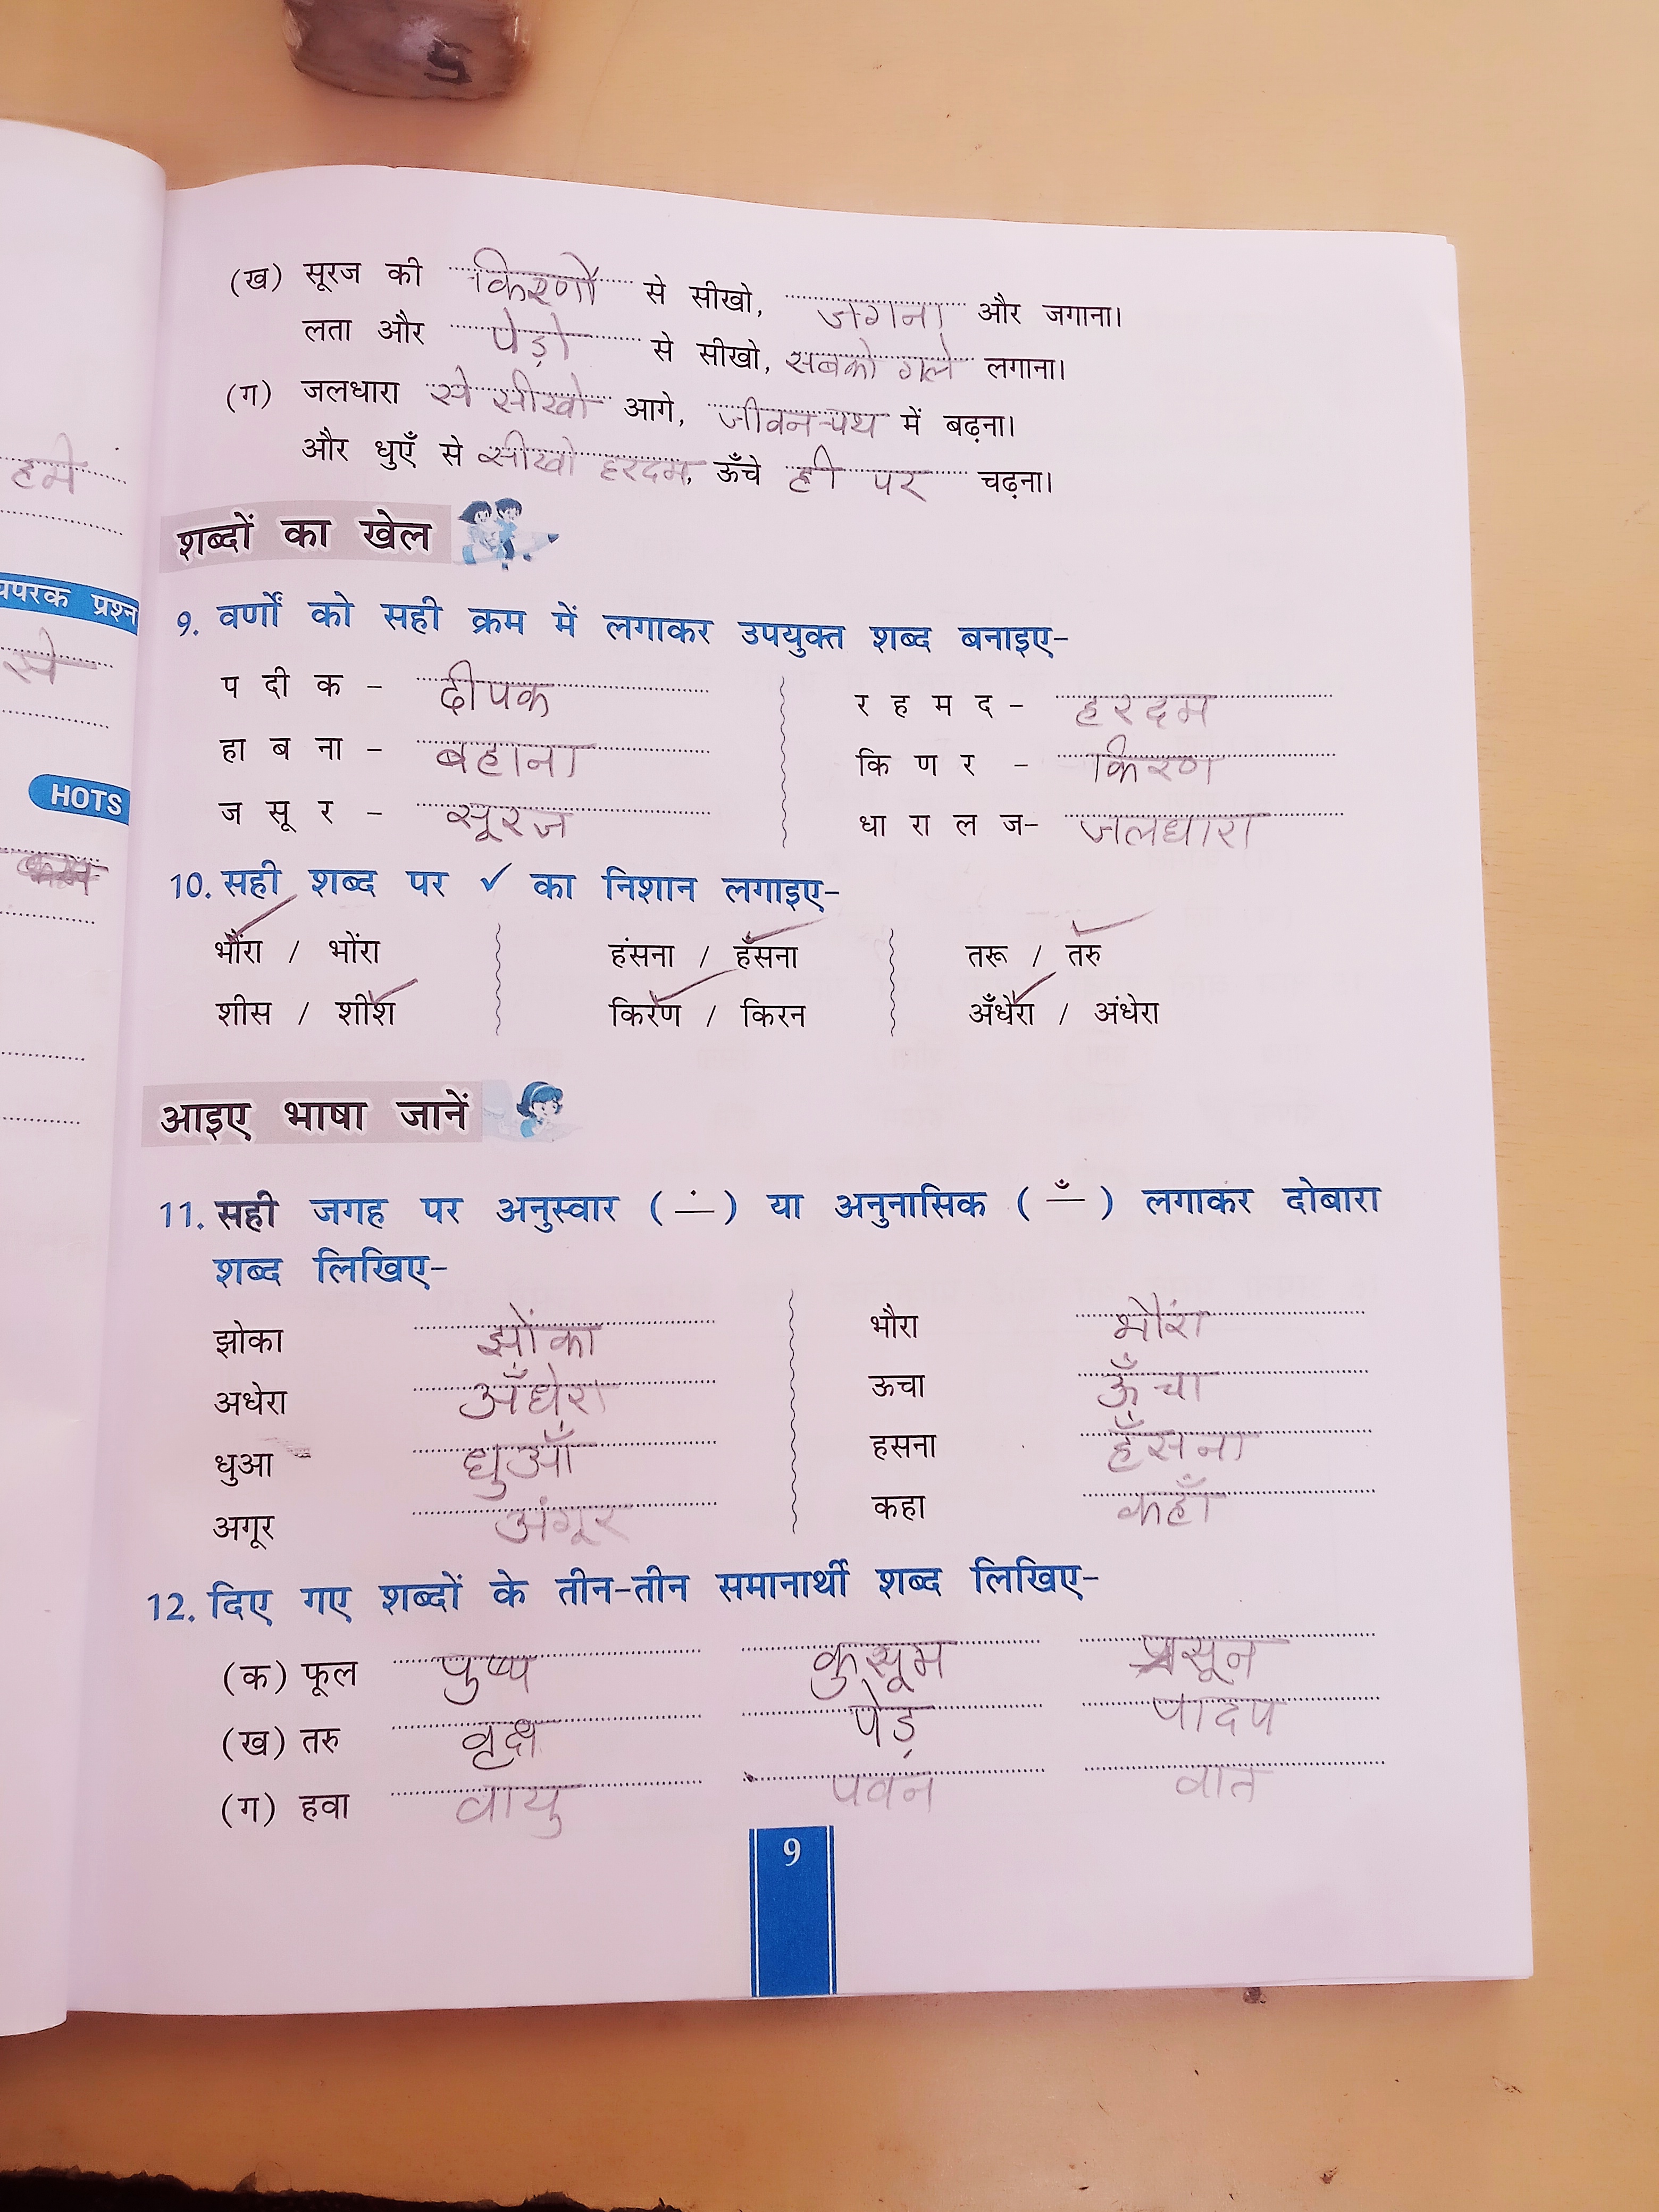 (ख) सूरज की किरणों से सीखो, जगना और जगाना।
लता और पेड़ो से सीखो, सबको गले लगाना।
(ग) जलधारा से सीखो आगे, जीवन-पथ में बढ़ना।
और धुएँ से सीखो हरदम, ऊँचे ही पर चढ़ना।
हमे
शब्दों का खेल
परक प्रश्न
से
HOTS
9. वर्णों को सही क्रम में लगाकर उपयुक्त शब्द बनाइए-
प दी क - दीपक र ह म द - हरदम
हा ब ना - बहाना कि ण र - किरण
ज सू र - सूरज धा रा ल ज- जलधारा
10. सही शब्द पर ✓ का निशान लगाइए-
भौंरा / भोंरा हंसना / हँसना तरू / तरु
शीस / शीश किरण / किरन अँधेरा / अंधेरा
आइए भाषा जानें
11. सही जगह पर अनुस्वार ( ं ) या अनुनासिक ( ँ ) लगाकर दोबारा
शब्द लिखिए-
झोका झोंका भौरा भौंरा
अधेरा अँधेरा ऊचा ऊँचा
धुआ धुआँ हसना हँसना
अगूर अंगूर कहा कहाँ
12. दिए गए शब्दों के तीन-तीन समानार्थी शब्द लिखिए-
(क) फूल पुष्प कुसूम प्रसून
(ख) तरु वृक्ष पेड़ पादप
(ग) हवा वायु पवन वात
9